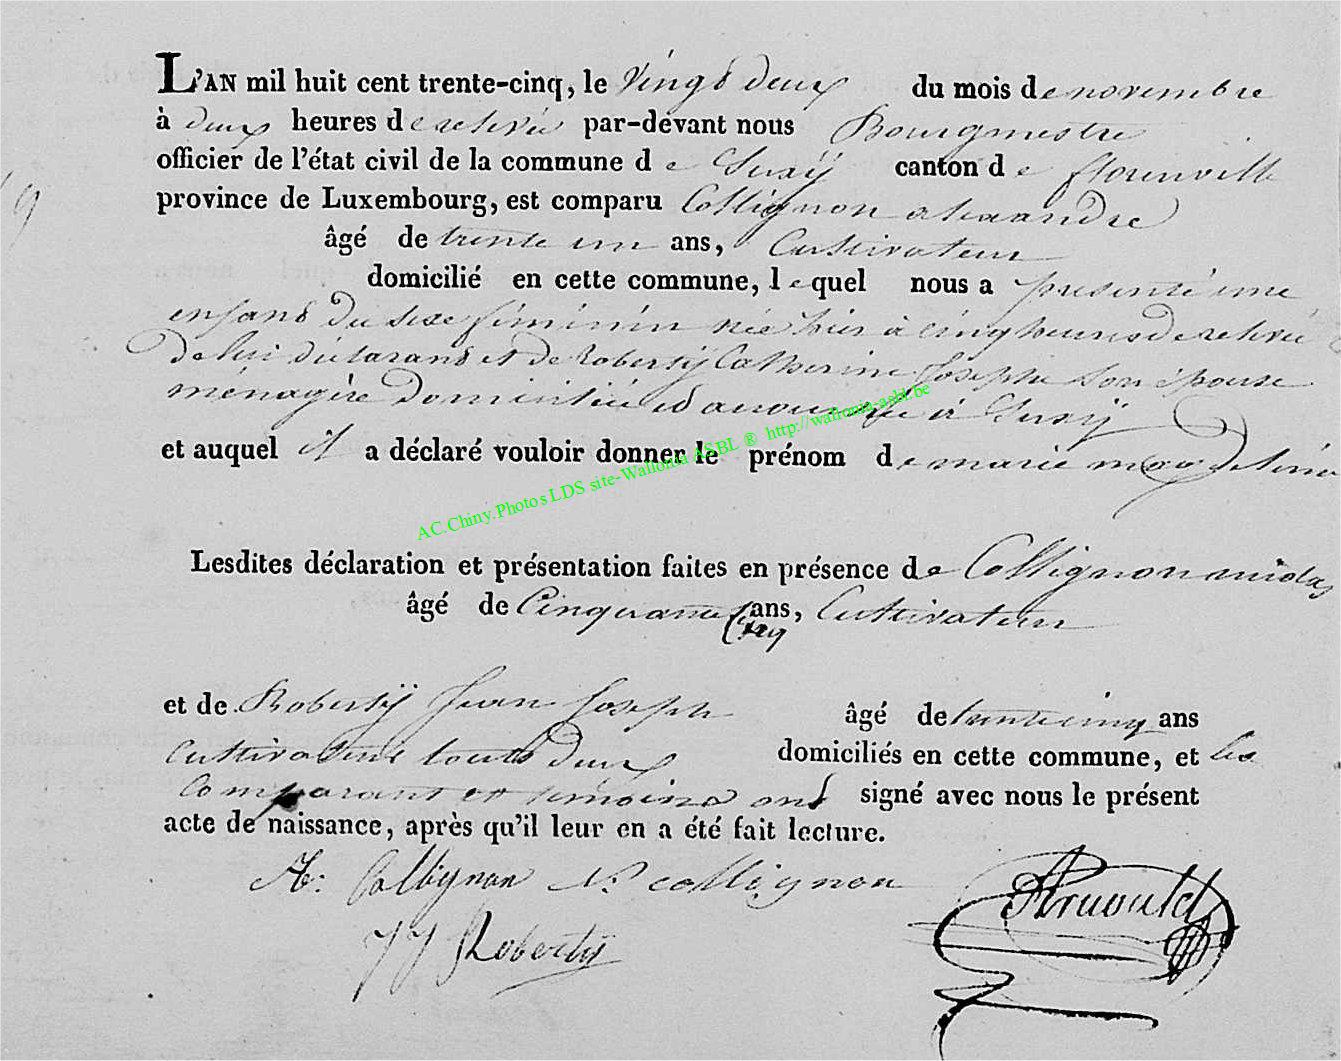 L'AN mil huit cent trente-cinq, le vingt deux du mois de novembre
à deux heures de relevée par-dévant nous Bourgmestre
officier de l'état civil de la commune de Suxÿ canton de florenville
province de Luxembourg, est comparu Collignon alexandre
âgé de trente un ans, Cultivateur
domicilié en cette commune, lequel nous a presenté une
enfant du sexe féminin née hier à cinq heures de relevée
de lui déclarant et de Robertÿ Catherine Joseph son épouse
ménagère domiciliée à Suxÿ
et auquel il a déclaré vouloir donner le prénom de marie
AC.Chiny.Photos LDS site-Wallonia ASBL ® http://wallonia-asbl.be
Lesdites déclaration et présentation faites en présence de Collignon nicolas
âgé de Cinquante cinq ans, Cultivateur
et de Robertÿ Jean Joseph âgé de trente cinq ans
Cultivateur touts deux domiciliés en cette commune, et les
Comparant et témoins ont signé avec nous le présent
acte de naissance, après qu'il leur en a été fait lecture.
A: Collignon N. collignon
JJ Robertÿ